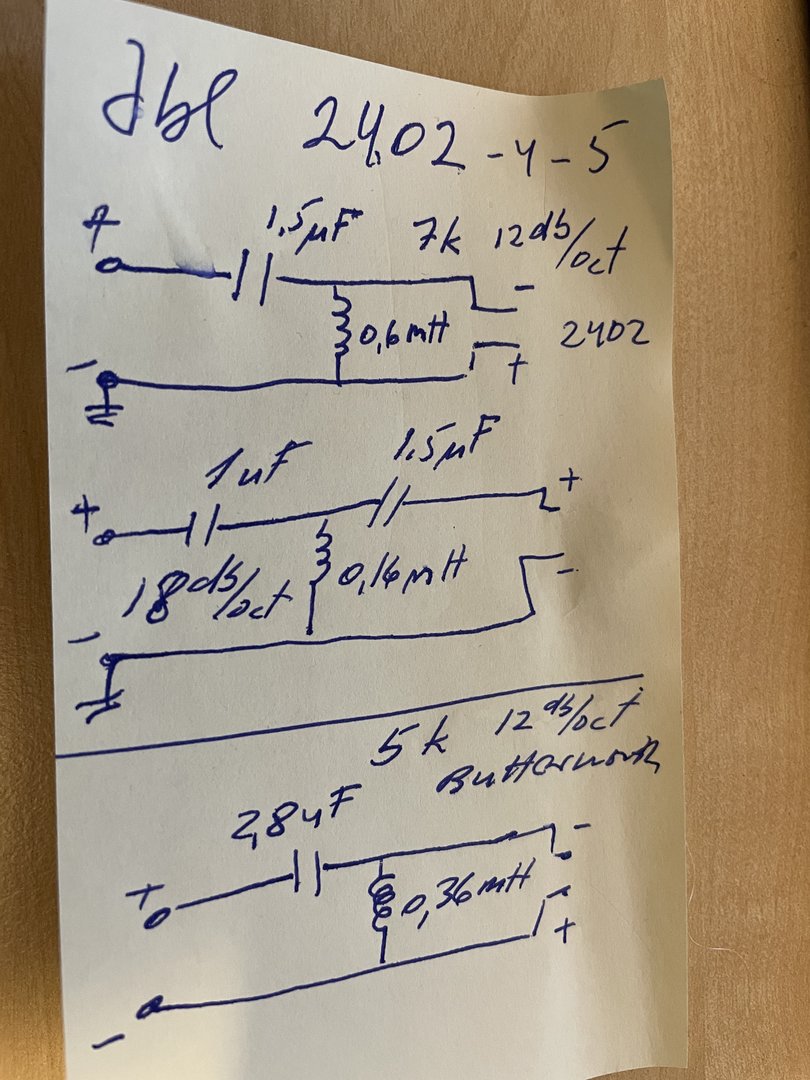 Jbl 2402-4-5
+ 1,5µF 7k 12db/oct
-
0,6mH 2402
- +
1uF 1.5µF
+ +
18db/oct 0,16mH -
-
5k 12db/oct
Butterworth
2,8uF
+ -
0,36mH
+
-